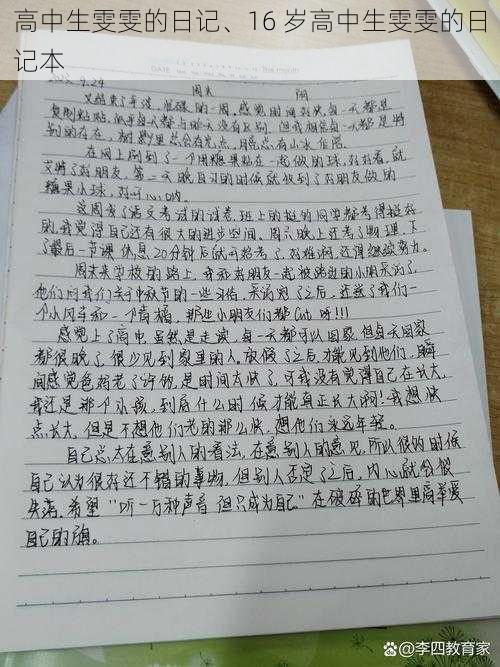 高中生雯雯的日记、16 岁高中生雯雯的日
记本
DATE
2023.9.24 周末 阴
又结束了平凡、忙碌的一周,感觉时间好快,每一天都是
复制粘贴,似乎每天都与昨天没有区别,但我相信每一天都是特
别的存在,树影里总会有光点,
在网上刷到了一个用糖果粘在一起做的球,好好看,就
艾特了好朋友,第二天晚自习的时候就收到了好朋友做的
糖果小球,好开心呐。
这周发了语文考试的试卷,班上的挺多同学都考得挺好
的,我觉得自己还有很大的进步空间。周六晚上还考了物理,下
了最后一节课休息20分钟后就开始考了,好难啊,还得继续努力。
周末来学校的路上,我和好朋友一起被路边的小朋采访了,
他们问我们关于中秋节的一些习俗,采访完了之后,还送了我们一
个小风车和一个香橘,那些小朋友们都Cute呀!!!
感觉上了高中,虽然是走读,每一天都可以回家,但每天回家
都很晚了,很少见到家里的人,放假了之后,才能见到他们,瞬
间感觉爸妈老了许多,是时间太快了,可我没有觉得自己在长大,
我还是那个小孩,到底什么时候才能真正长大啊!我想快
点长大,但是不想他们老的那么快,想他们永远年轻。
自己总太在意别人的看法,在意别人的意见,所以很多时候
自己认为很好还不错的事物,但别人否定了之后,内心就会很
失落,希望“听一万种声音 但只成为自己”在破碎的世界里高举爱
自己的旗。
@李四教育家